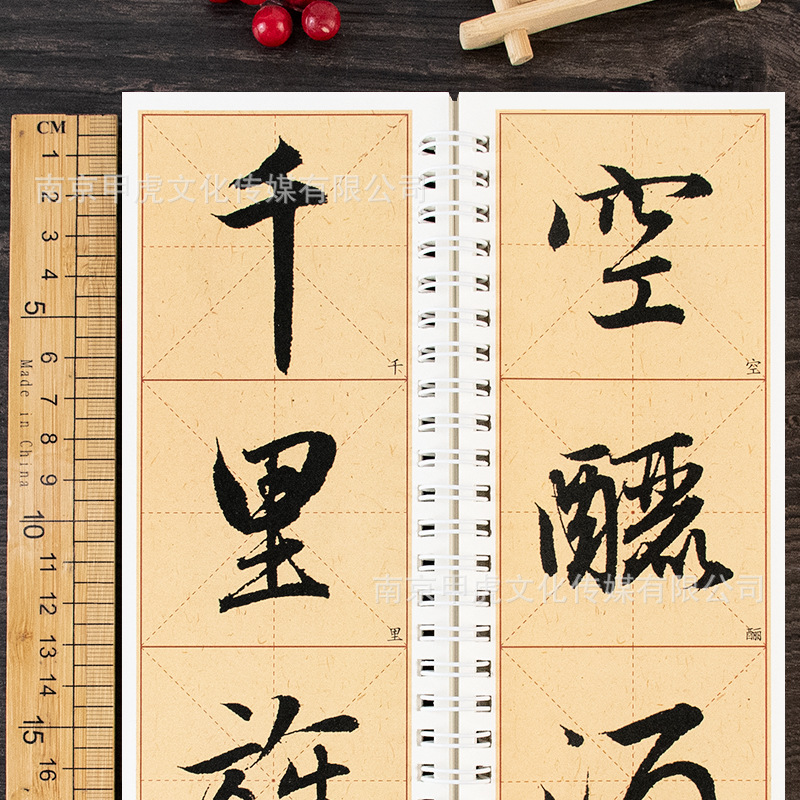 CM
1
2
3
4
5
6
7
8
9
10
11
12
13
14
15
16
Made in China
千
千
里
里
空
空
釃
酾
南京甲虎文化传媒有限公司
南京甲虎文化传媒有限公司